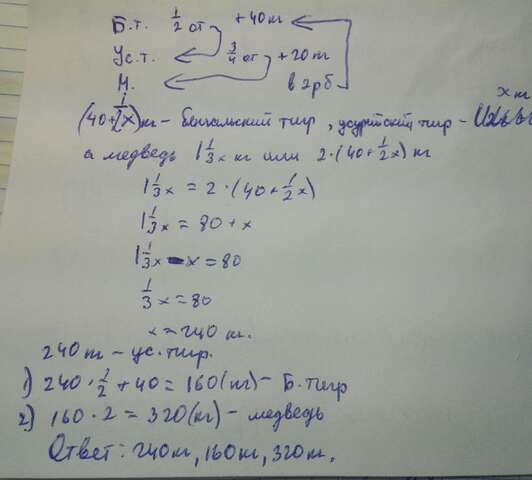 Б.т. 1/2 от +40 кг
Ус.т. 3/4 от +20 кг
М. в 2 р б
x кг
(40+1/2x) кг - бенгальский тигр, уссурийский тигр -
а медведь 1 1/3 x кг или 2·(40+1/2x) кг
1 1/3 x = 2·(40+1/2x)
1 1/3 x = 80 + x
1 1/3 x - x = 80
1/3 x = 80
x = 240 кг.
240 кг - ус. тигр.
1) 240·1/2 + 40 = 160 (кг) - Б. тигр
2) 160·2 = 320 (кг) - медведь
Ответ: 240 кг, 160 кг, 320 кг.